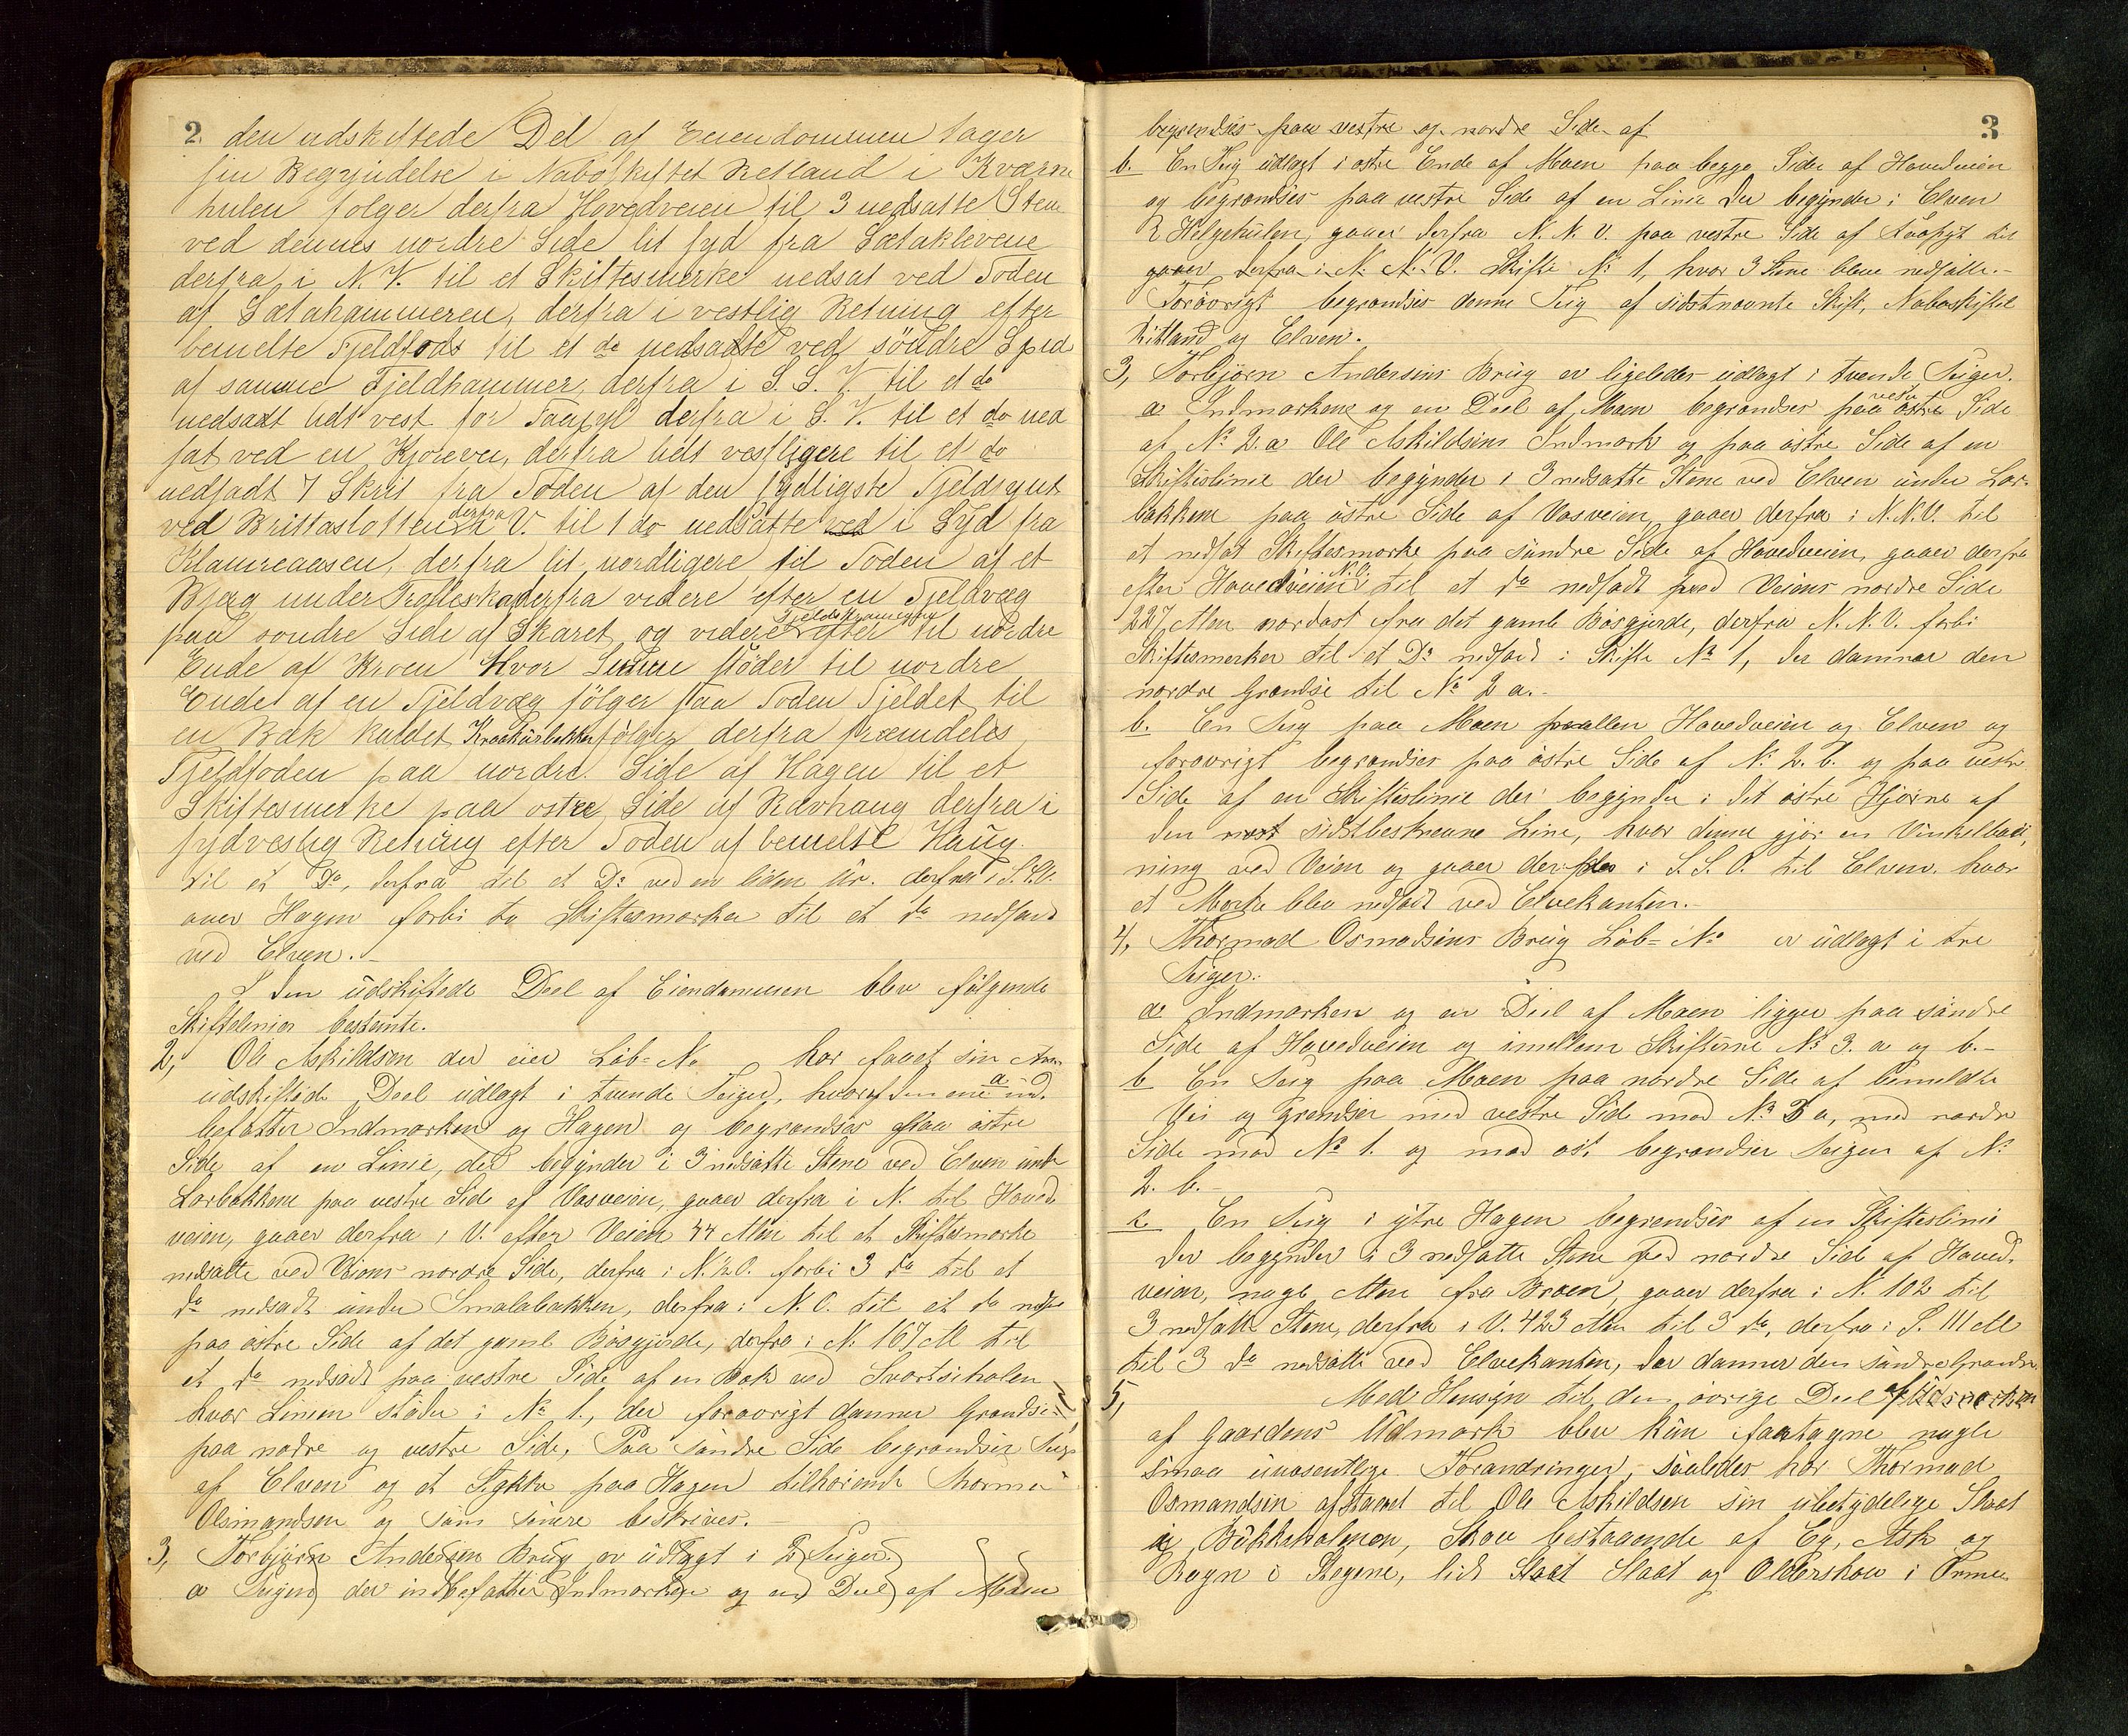 2. den udskiftede Del af Eiendommen tager
sin Begyndelse i Naboskiftet Retland i Kværne
hulen følger derfra Hovedveien til 3 nedsatte Stene
ved dennes nordre Side lit syd fra Sætaklevene
derfra i N. V. til et Skiftesmerke nedsat ved Foden
af Sætahammeren, derfra i vestlig Retning efter
bemelte Fjeldfods til et do nedsadte ved söndre Spid
af samme Fjeldhammer, derfra i S. S. V. til et do
nedsadt lidt vest for derfra i S. V. til et do ned
sat ved en derfra lidt vestligere til et do
nedsadt 7 Skrit fra Foden af den sydligste Fjeldsynt
ved Brittaslotten derfra V. til 1 do nedsatte ved i Syd fra
Klamreaasen, derfra lit nordligere til Foden af et
Bjerg under derfra videre efter en Fjeldvæg
paa søndre Side af Skaret og videre efter til nordre
Ende af Broen hvor Linien støder til nordre
Ende af en Fjeldvæg fölger paa Foden Fjeldet til
en Bæk kaldet følger derfra fremdeles
Fjeldfoden paa nordre Side af Hagen til et
Skiftesmerke paa ostre Side af Ravhaug derfra i
sydveslig Retning efter Foden af bemelte Haug
til et Do, derfra til et Do ved en liden Ur. derfra i S.
over Hagen forbi to Skiftesmerker til et do nedsadt
ved Elven.
I den udskiftede Deel af Eiendommen blev følgende
Skiftelinier bestemte.
2, Ole Askildsen der eier Löb= No har faaet sin
udskiftede Deel udlagt i tvende Teiger, hvoraf den ene a ind
befatter Indmarken og Hagen og begrændses paa østre
Side af en Linie, der begynder i 3 nedsatte Stene ved Elven under
Lorbakkene paa vestre Side af Vasveien, gaaer derfra i N. til Hoved
veien, gaaer derfra i V. efter Veien 44 Alen til et Skiftesmerke
nedsatte ved Veiens nordre Side, derfra i N. ½ O. forbi 3 do til et
do nedsadt under Smalabakken, derfra i N. O. til et do nedsa
paa østre Side af det gamle Bøsgjerde, derfra i N. 167 Al til
et do nedsadt paa vestre Side af en Bæk ved
hvor Linien støder i No 1., der forøvrigt danner Grændsen
paa nordre og vestre Side, Paa søndre Side begrændser Teigen
af Elven og et Stykke paa Hagen tilhørende Thormo
Osmundsen og som senere beskrives.
3, Torbjørn Andersen Brug er udlagt i 2 Teiger.
a Teigen der indbefatter Indmarken og en Deel af Moen

3
begrendses paa vestre og nordre Side af
b. En Teig udlagt i østre Ende af Moen paa begge Sider af Hovedveien
og begrændses paa vestre Side af en Linie der begynder i Elven
i Helgehulen, gaaer derfra N. N. V. paa vestre Side af til
gaaer derfra i N. N. V. Skifte No 1, hvor 3 Stene bleve nedsatte.-
Forøvrigt begrændses denne Teig af sidstnævnte Skift, Naboskiftet
Ritland og Elven.
3, Torbjørn Andersens Brug er ligeledes udlagt i tvende Teiger.
a Indmarkene og en Deel af Moen begrændses paa vestre østre Side
af No 2. a Ole Askildsens Indmark og paa østre Side af en
Skifteslinie der begynder i 3 nedsatte Stene ved Elven under Lor
bakkene paa østre Side af Vasveien, gaaer derfra i N. N. V. til
et nedsat Skiftesmerke paa søndre Side af Hovedveien, gaaer derfra
efter Hovedveien N. O. til et do nedsadt ved Veiens nordre Side
227 Alen nordost fra det gamle Bøsgjerde, derfra N. N. V. forbi
Skiftesmerker til et Do nedsad i Skifte No 1, der danner den
nordre Grændse til No 2 a.-
b. En Teig paa Moen imellem Hovedveien og Elven og
forøvrigt begrændses paa østre Side af No 2. b. og paa vestre
Side af en Skifteslinie der begynder i det østre Hjørne af
den næst sidstbeskrevne Linie, hvor denne gjør en Vinkelbøi,
ning ved Veien og gaaer derfra i S. S. O. til Elven, hvor
et Merke blev nedsadt ved Elvekanten.-
4, Thormod Osmundsens Brug Löb= No er udlagt i tre
Teiger.
a Indmarken og en Deel af Moen ligger paa søndre
Side af Hovedveien og imellem Skifterne No 3. a og b.-
b En Teig paa Moen paa nordre Side af bemeldte
Vei og Grændser med vestre Side mod No 3 a, med nordre
Side mod No 1. og mod øst begrændser Teigen af No
2. b.-
c. En Teig i ytre Hagen begrendses af en Skifteslinie
der begynder i 3 nedsatte Stene ved nordre Side af Hoved,
veien, nogle Alen fra Broen, gaaer derfra i N. 102 til
3 nedsatte Stene, derfra i V. 423 Alen til 3 do, derfra i S. 111 Al
til 3 do nedsatte ved Elvekanten, der danner den søndre Grændse
5, Med Hensyn til den øvrige Deel af Udmarken
af Gaardens Udmark blev kun foretagne nogle
smaa uvæsentlige Forandringer, saaledes har Thormod
Osmundsen afstaaet til Ole Askildsen sin ubetydelige Slaat
i Bukkeholmen, Skov bestaaende af Eg, Ask og
Rogn i Stegene, lidt Slaat og Olderskov i